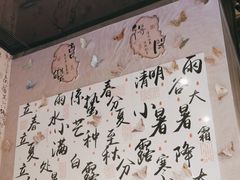 立春立夏
雨水小满处
惊蛰芒种白露
春分夏至秋分
清明小暑寒露
谷雨大暑霜降